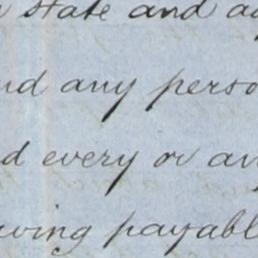 state and a
nd any perso
d every or an
wing payabl